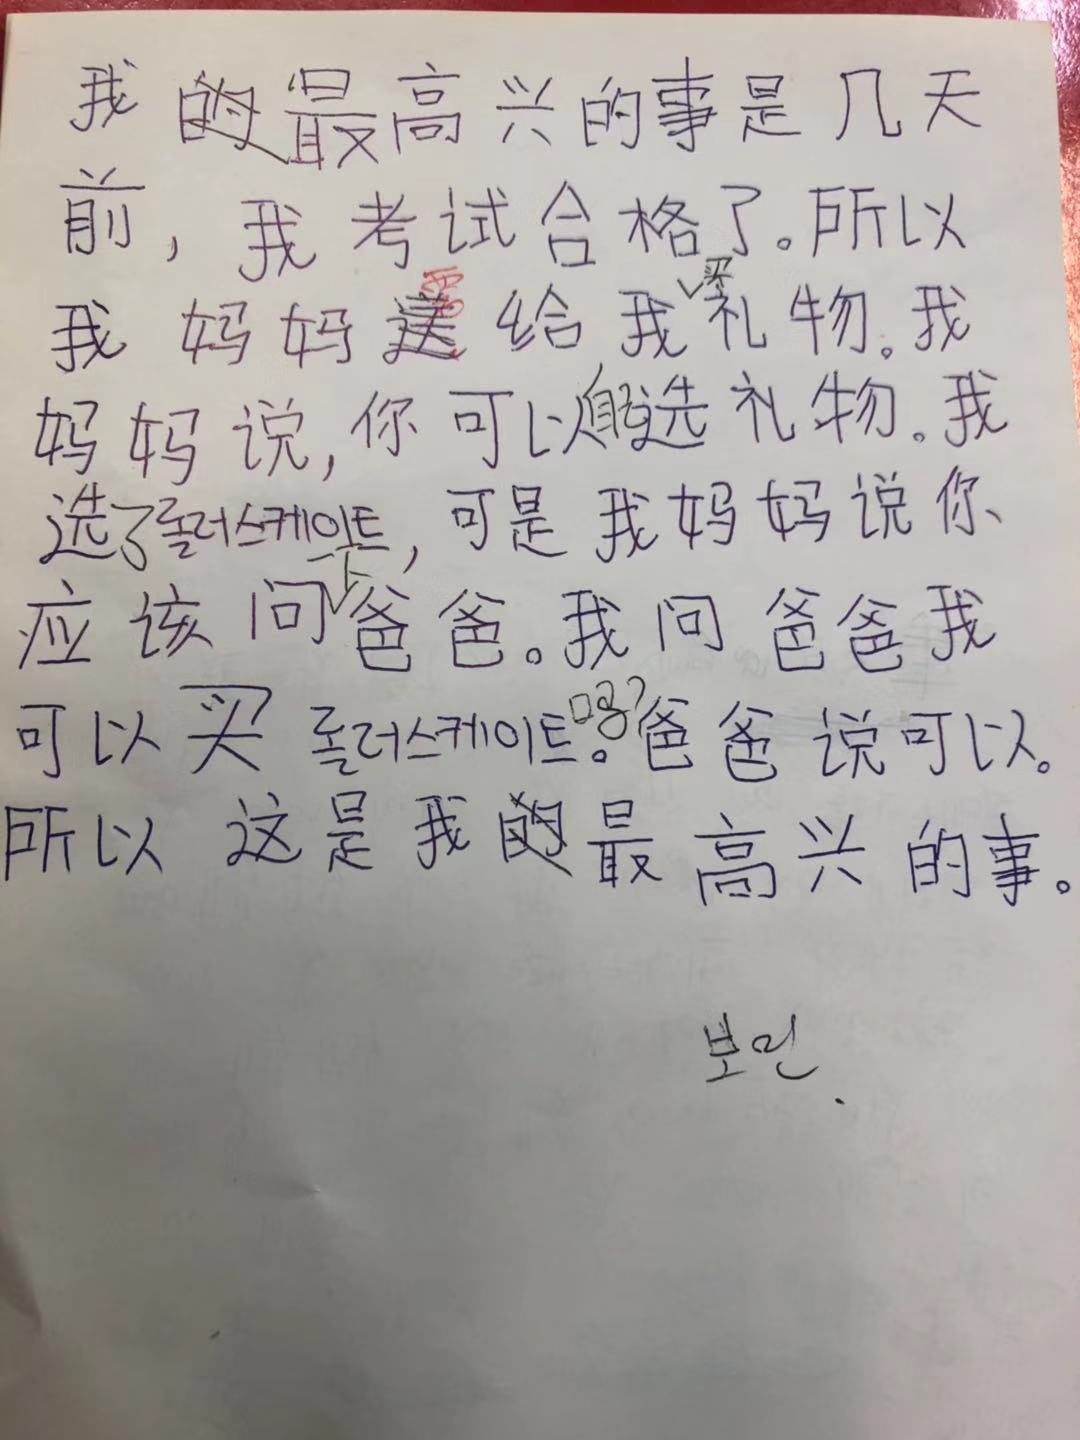 我的最高兴的事是几天
前，我考试合格了。所以
我妈妈要给我买礼物。我
妈妈说，你可以自己选礼物。我
选了롤러스케이트，可是我妈妈说你
应该问下爸爸。我问爸爸我
可以买롤러스케이트吗？爸爸说可以。
所以这是我的最高兴的事。
보민